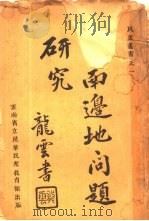 民眾叢書之一
南邊地問題
研究
龍雲書
雲南省立昆華民眾教育館出版